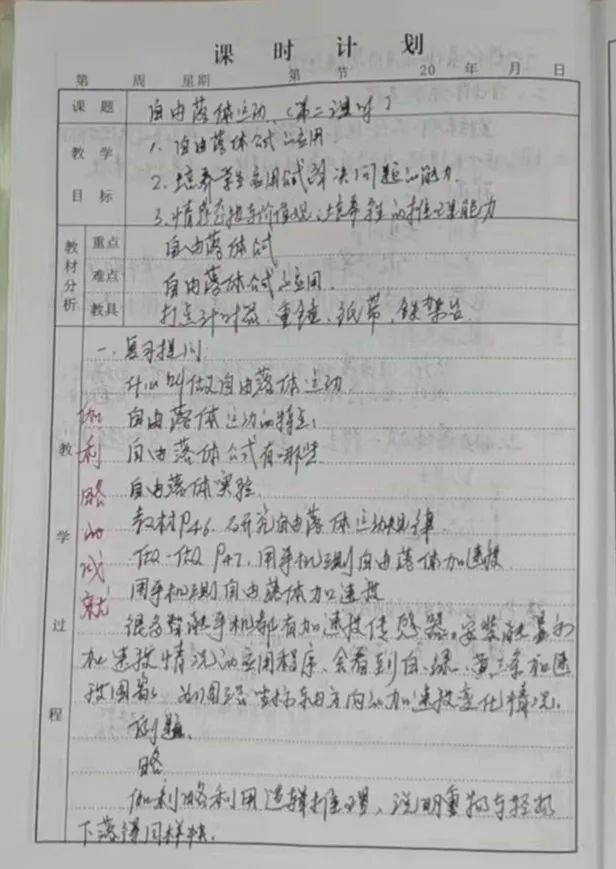 课时计划
第 周 星期 第 节 20 年 月 日
课题 自由落体运动(第二课时)
教学目标
1. 自由落体公式的应用
2. 培养学生应用公式解决问题的能力
3. 情感态度与价值观:培养学生的推理能力
教材分析
重点 自由落体公式
难点 自由落体公式的应用.
教具 打点计时器、重锤、纸带、铁架台
教学过程
伽利略的成就
一、复习提问:
什么叫做自由落体运动
自由落体运动的特点:
自由落体公式有哪些
自由落体实验
教材P46. 研究自由落体运动规律
做一做 P47. 用手机测自由落体加速度
用手机测自由落体加速度
很多智能手机都有加速度传感器。安装能显示
加速度情况的应用程序,会看到白、绿、黄三条加速
度图象 坐标轴方向的加速度变化情况.
例题.
略
伽利略利用逻辑推理,说明重物与轻物
下落得同样快.